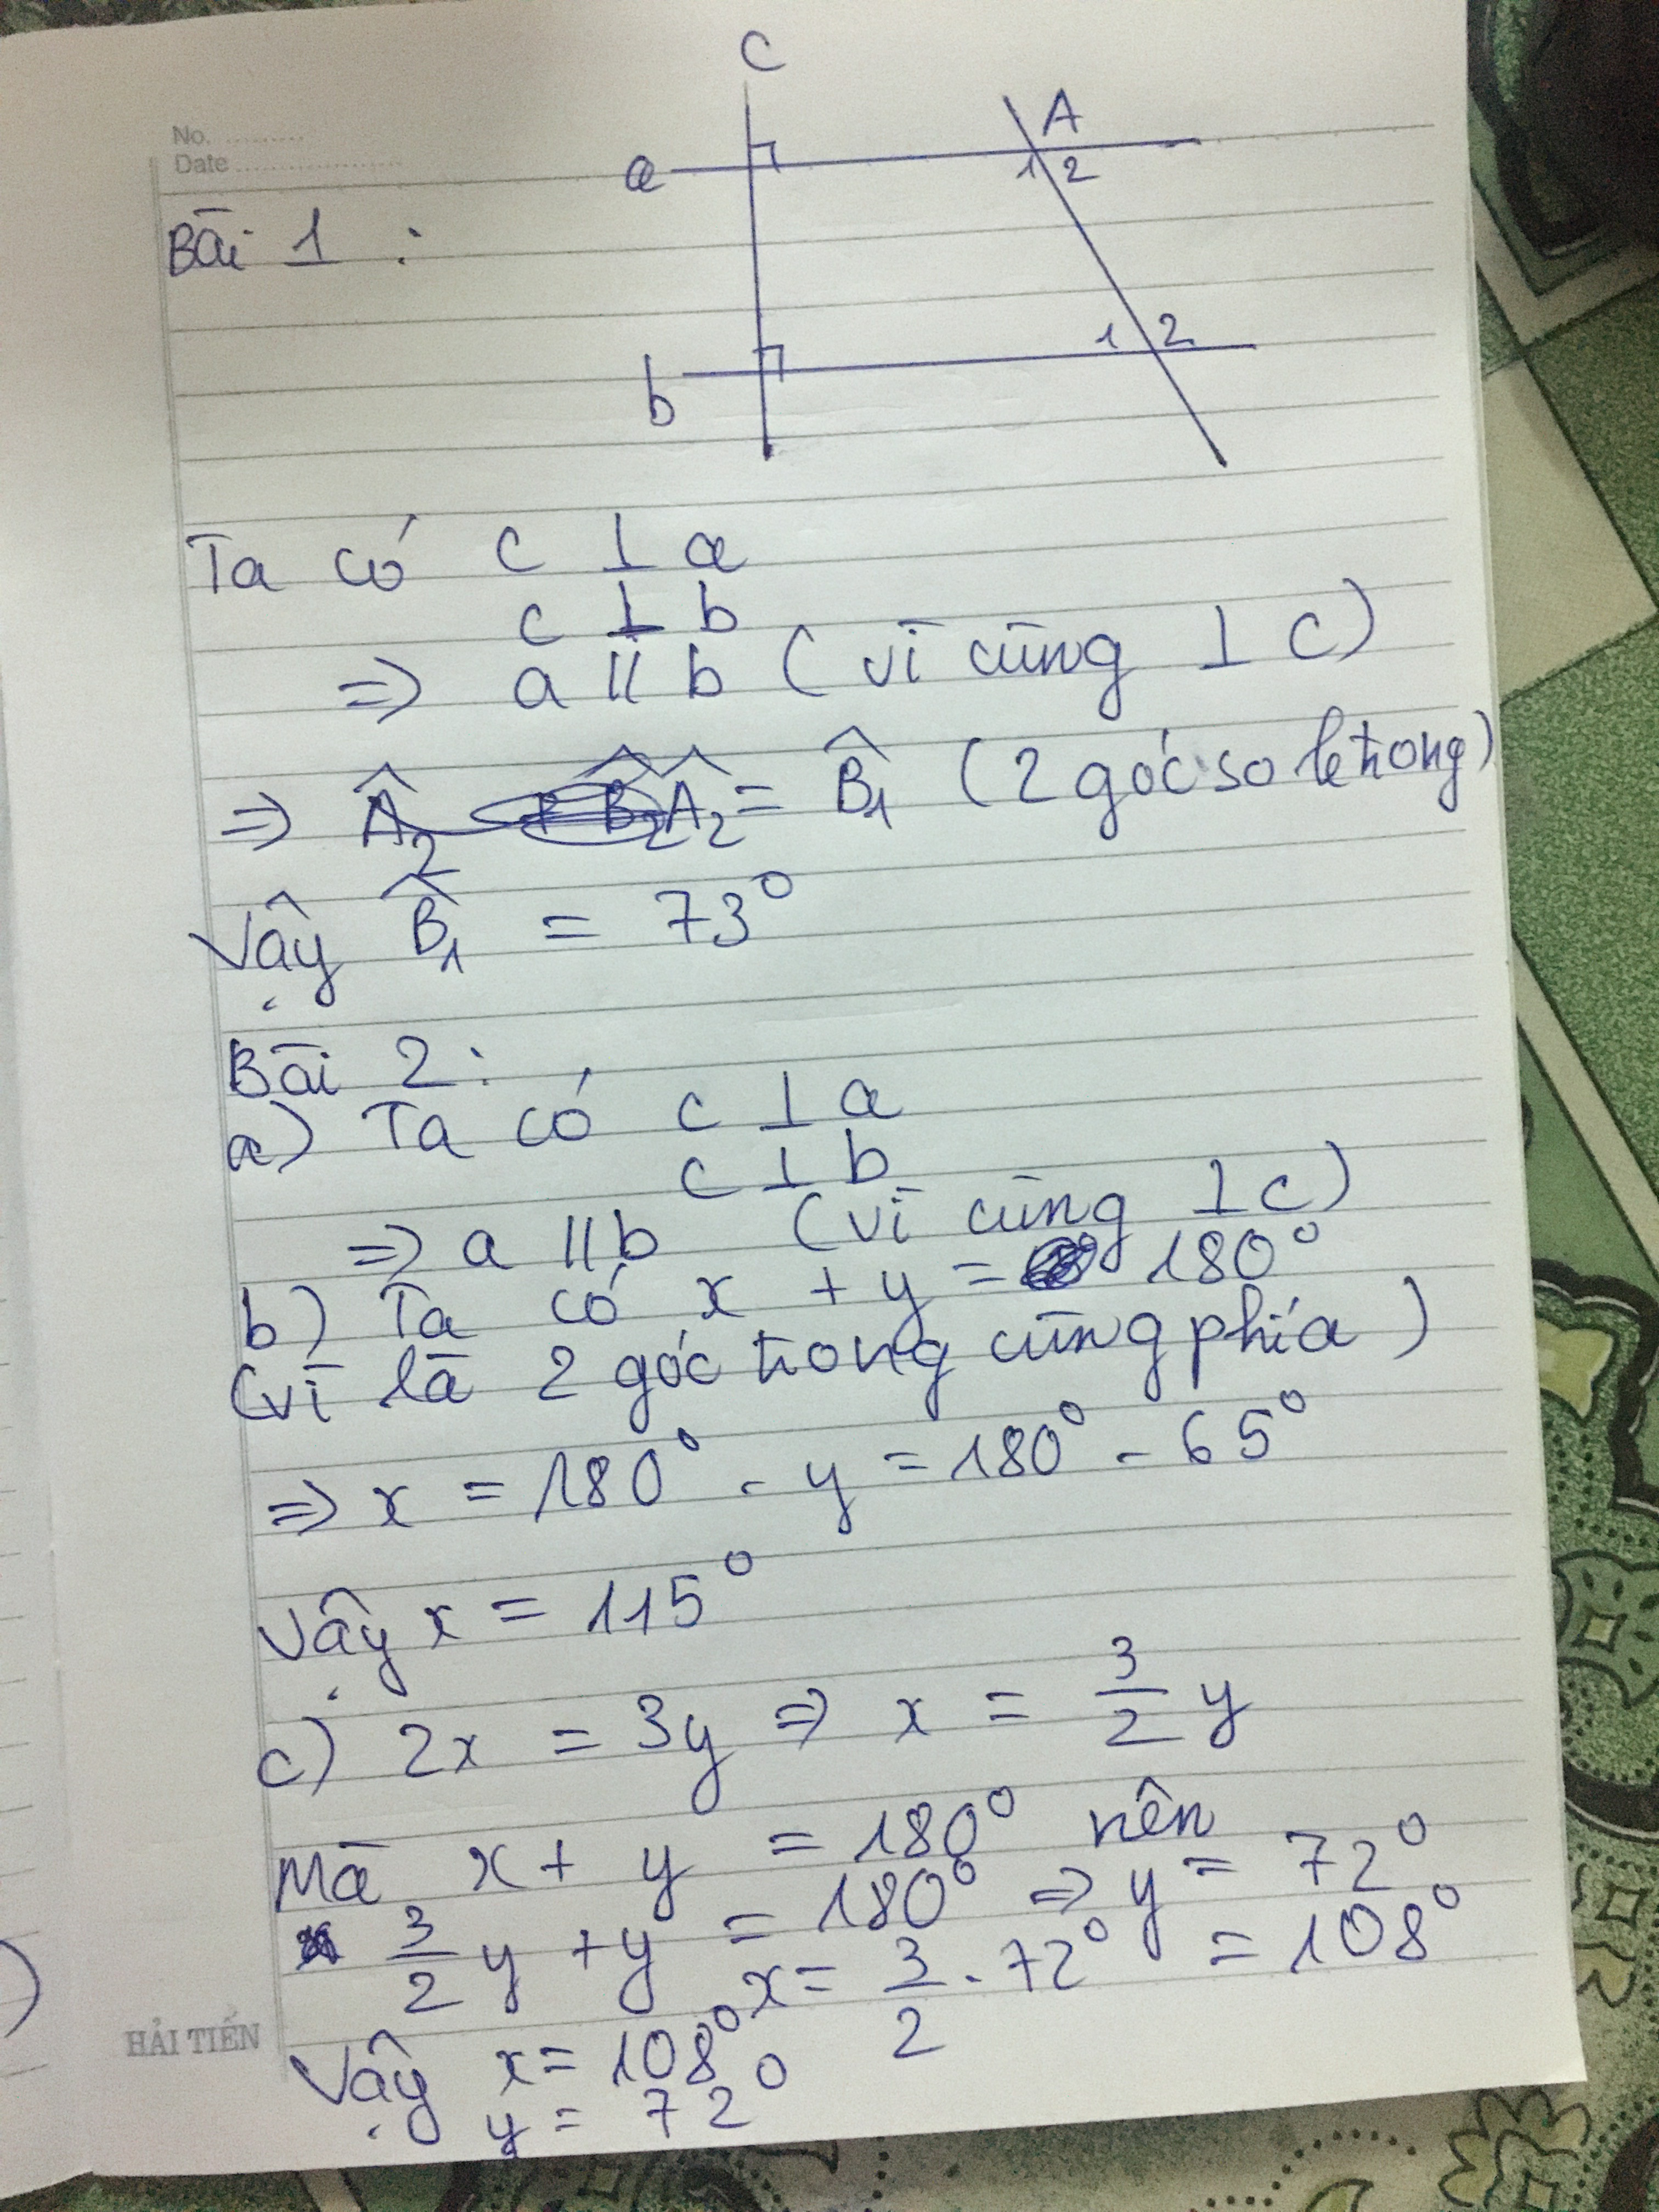 No. ..........
Date ....................
C
a
A
1 2
Bài 1 :
1 2
b
Ta có c ⊥ a
c ⊥ b
=> a // b ( vì cùng ⊥ c)
=> Â₂ Â₂ = B̂₁ (2 góc so le trong)
Vậy B̂₁ = 73°
Bài 2:
a) Ta có c ⊥ a
c ⊥ b
=> a // b (vì cùng ⊥ c)
b) Ta có x + y = 180°
(vì là 2 góc trong cùng phía )
=> x = 180° - y = 180° - 65°
Vậy x = 115°
c) 2x = 3y => x = 3/2 y
Mà x + y = 180° nên
3/2 y + y = 180° => y = 72°
x = 3/2 . 72° = 108°
Vậy x = 108°
y = 72°
HẢI TIẾN